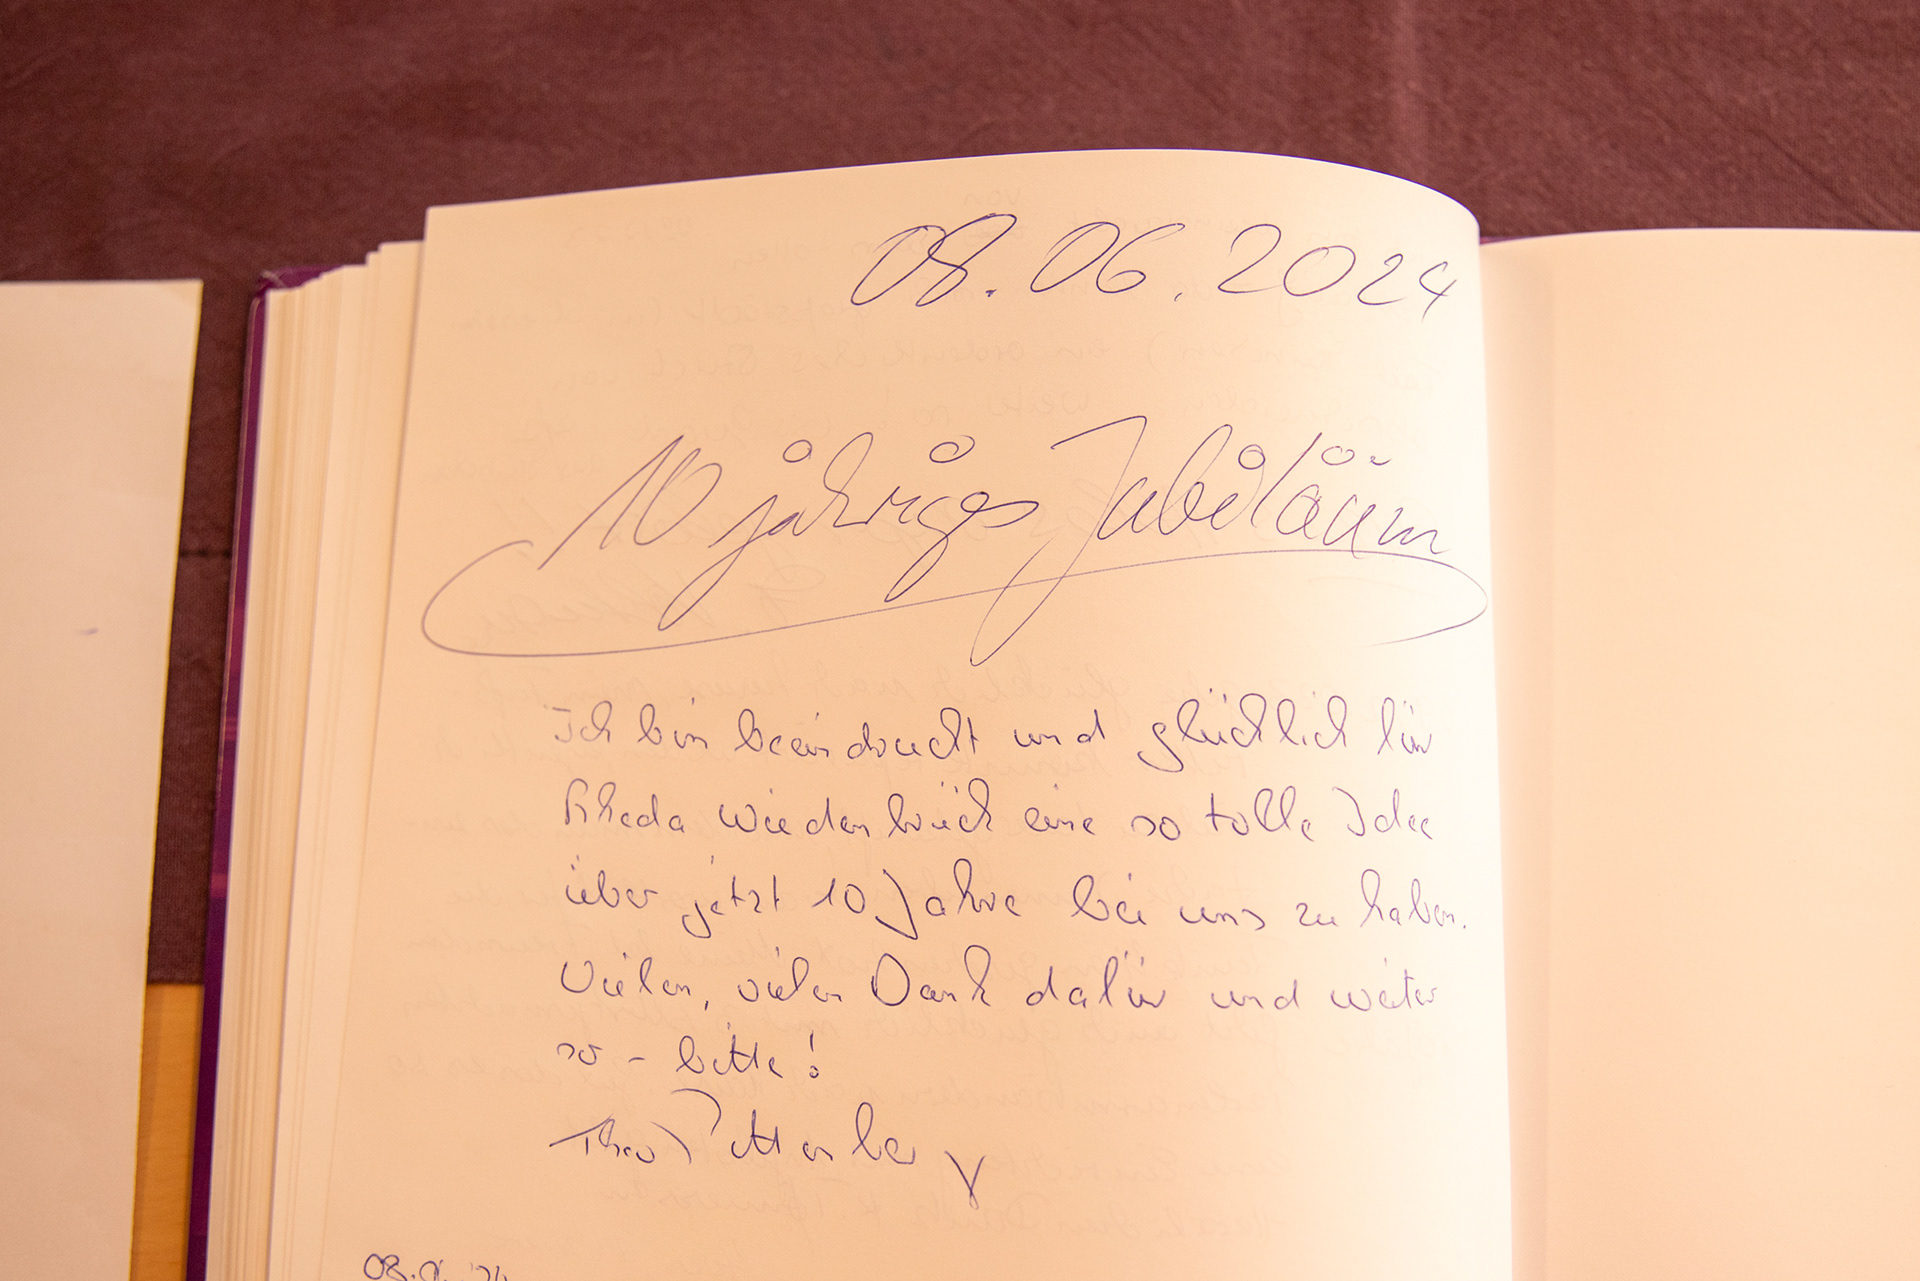 08.06.2024
10 jähriges Jubiläum
Ich bin beeindruckt und glücklich für
Rheda Wiedenbrück eine so tolle Idee
über jetzt 10 Jahre bei uns zu haben.
Vielen, vielen Dank dafür und weiter
so - bitte!
Theo
08.06.24